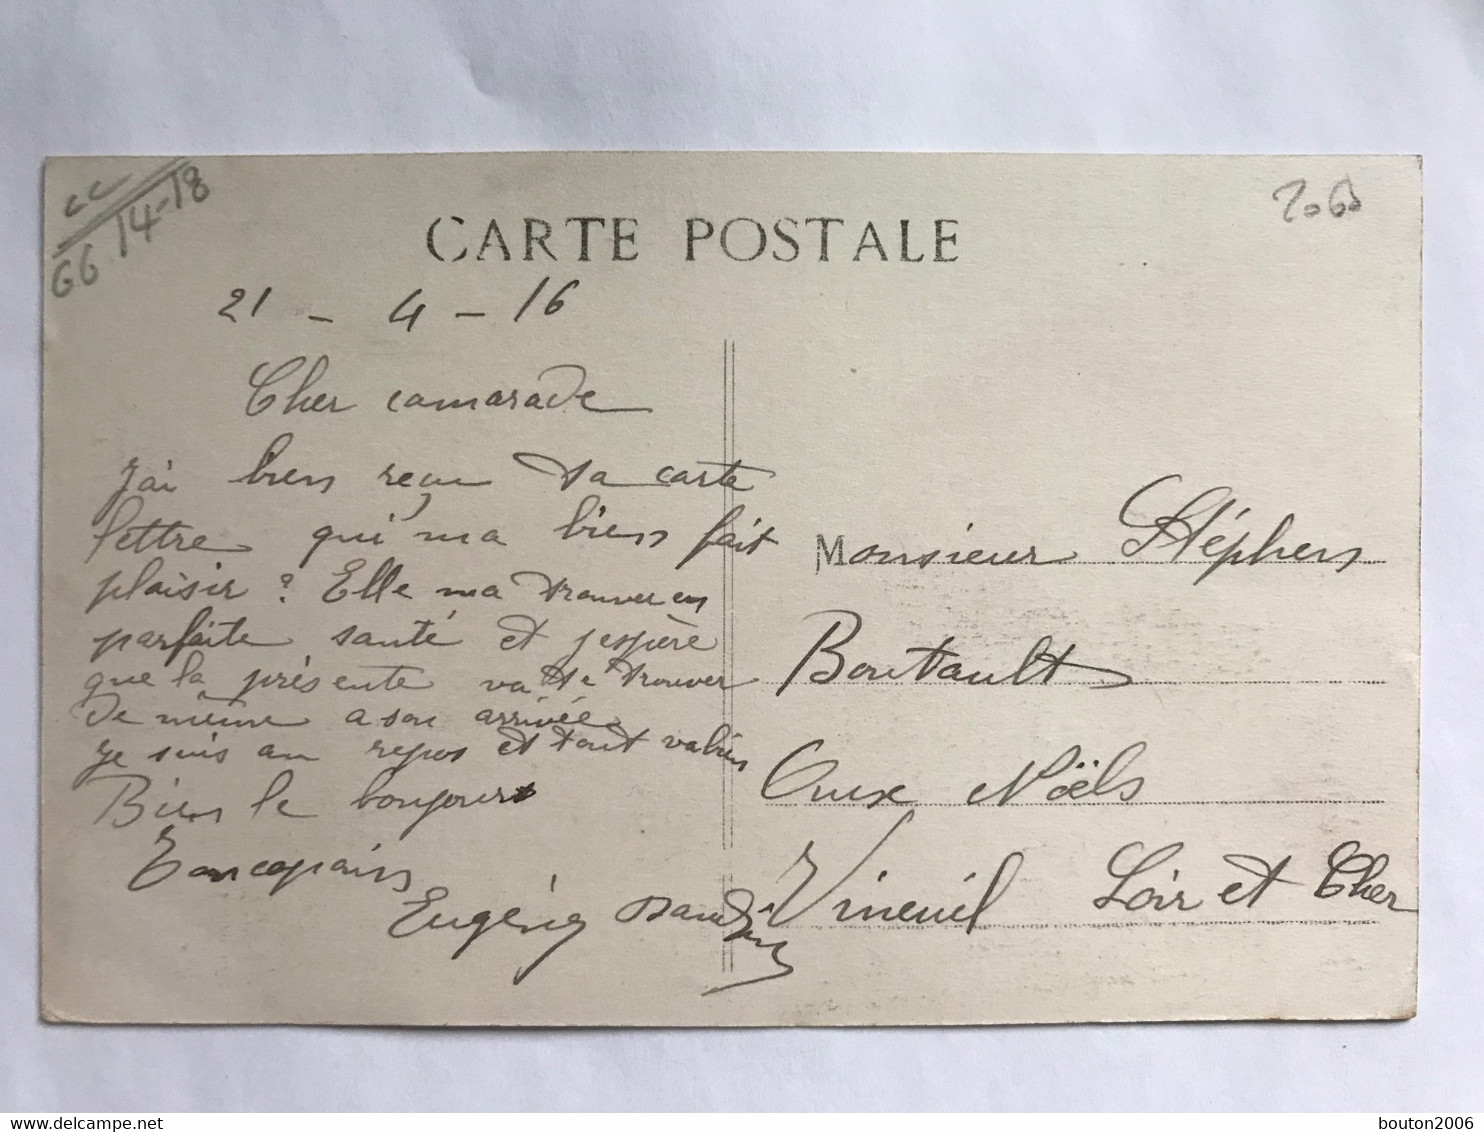 GG 14-18
CARTE POSTALE
21 - 4 - 16
Cher camarade
J'ai bien reçu ta carte
lettre qui ma bien fait
plaisir ? Elle ma trouver en
parfaite santé et jespère
que la présente va te trouver
de même a son arrivée
je suis au repos et tout va bien
Bien le bonjour
Ton copain
Eugène
Monsieur Stéphen
Boutault
Aux Noëls
Vineuil Loir et Cher
delcampe.net
bouton2006